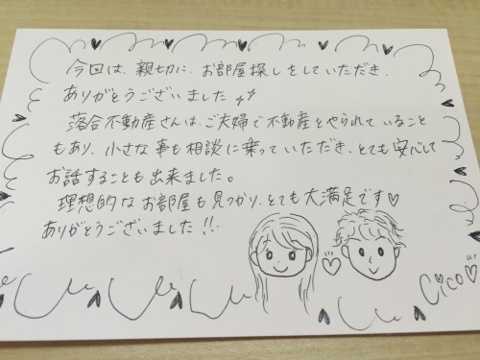 今回は、親切に、お部屋探しをしていただき、
ありがとうございました
落合不動産さんは、ご夫婦で不動産をやられていること
もあり、小さな事も相談に乗っていただき、とても安心して
お話することも出来ました。
理想的なお部屋も見つかり、とても大満足です♡
ありがとうございました!!
Cico♡